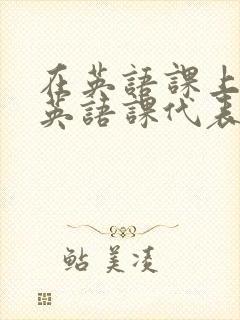 在英語課上
英語課代表
鮎美凌